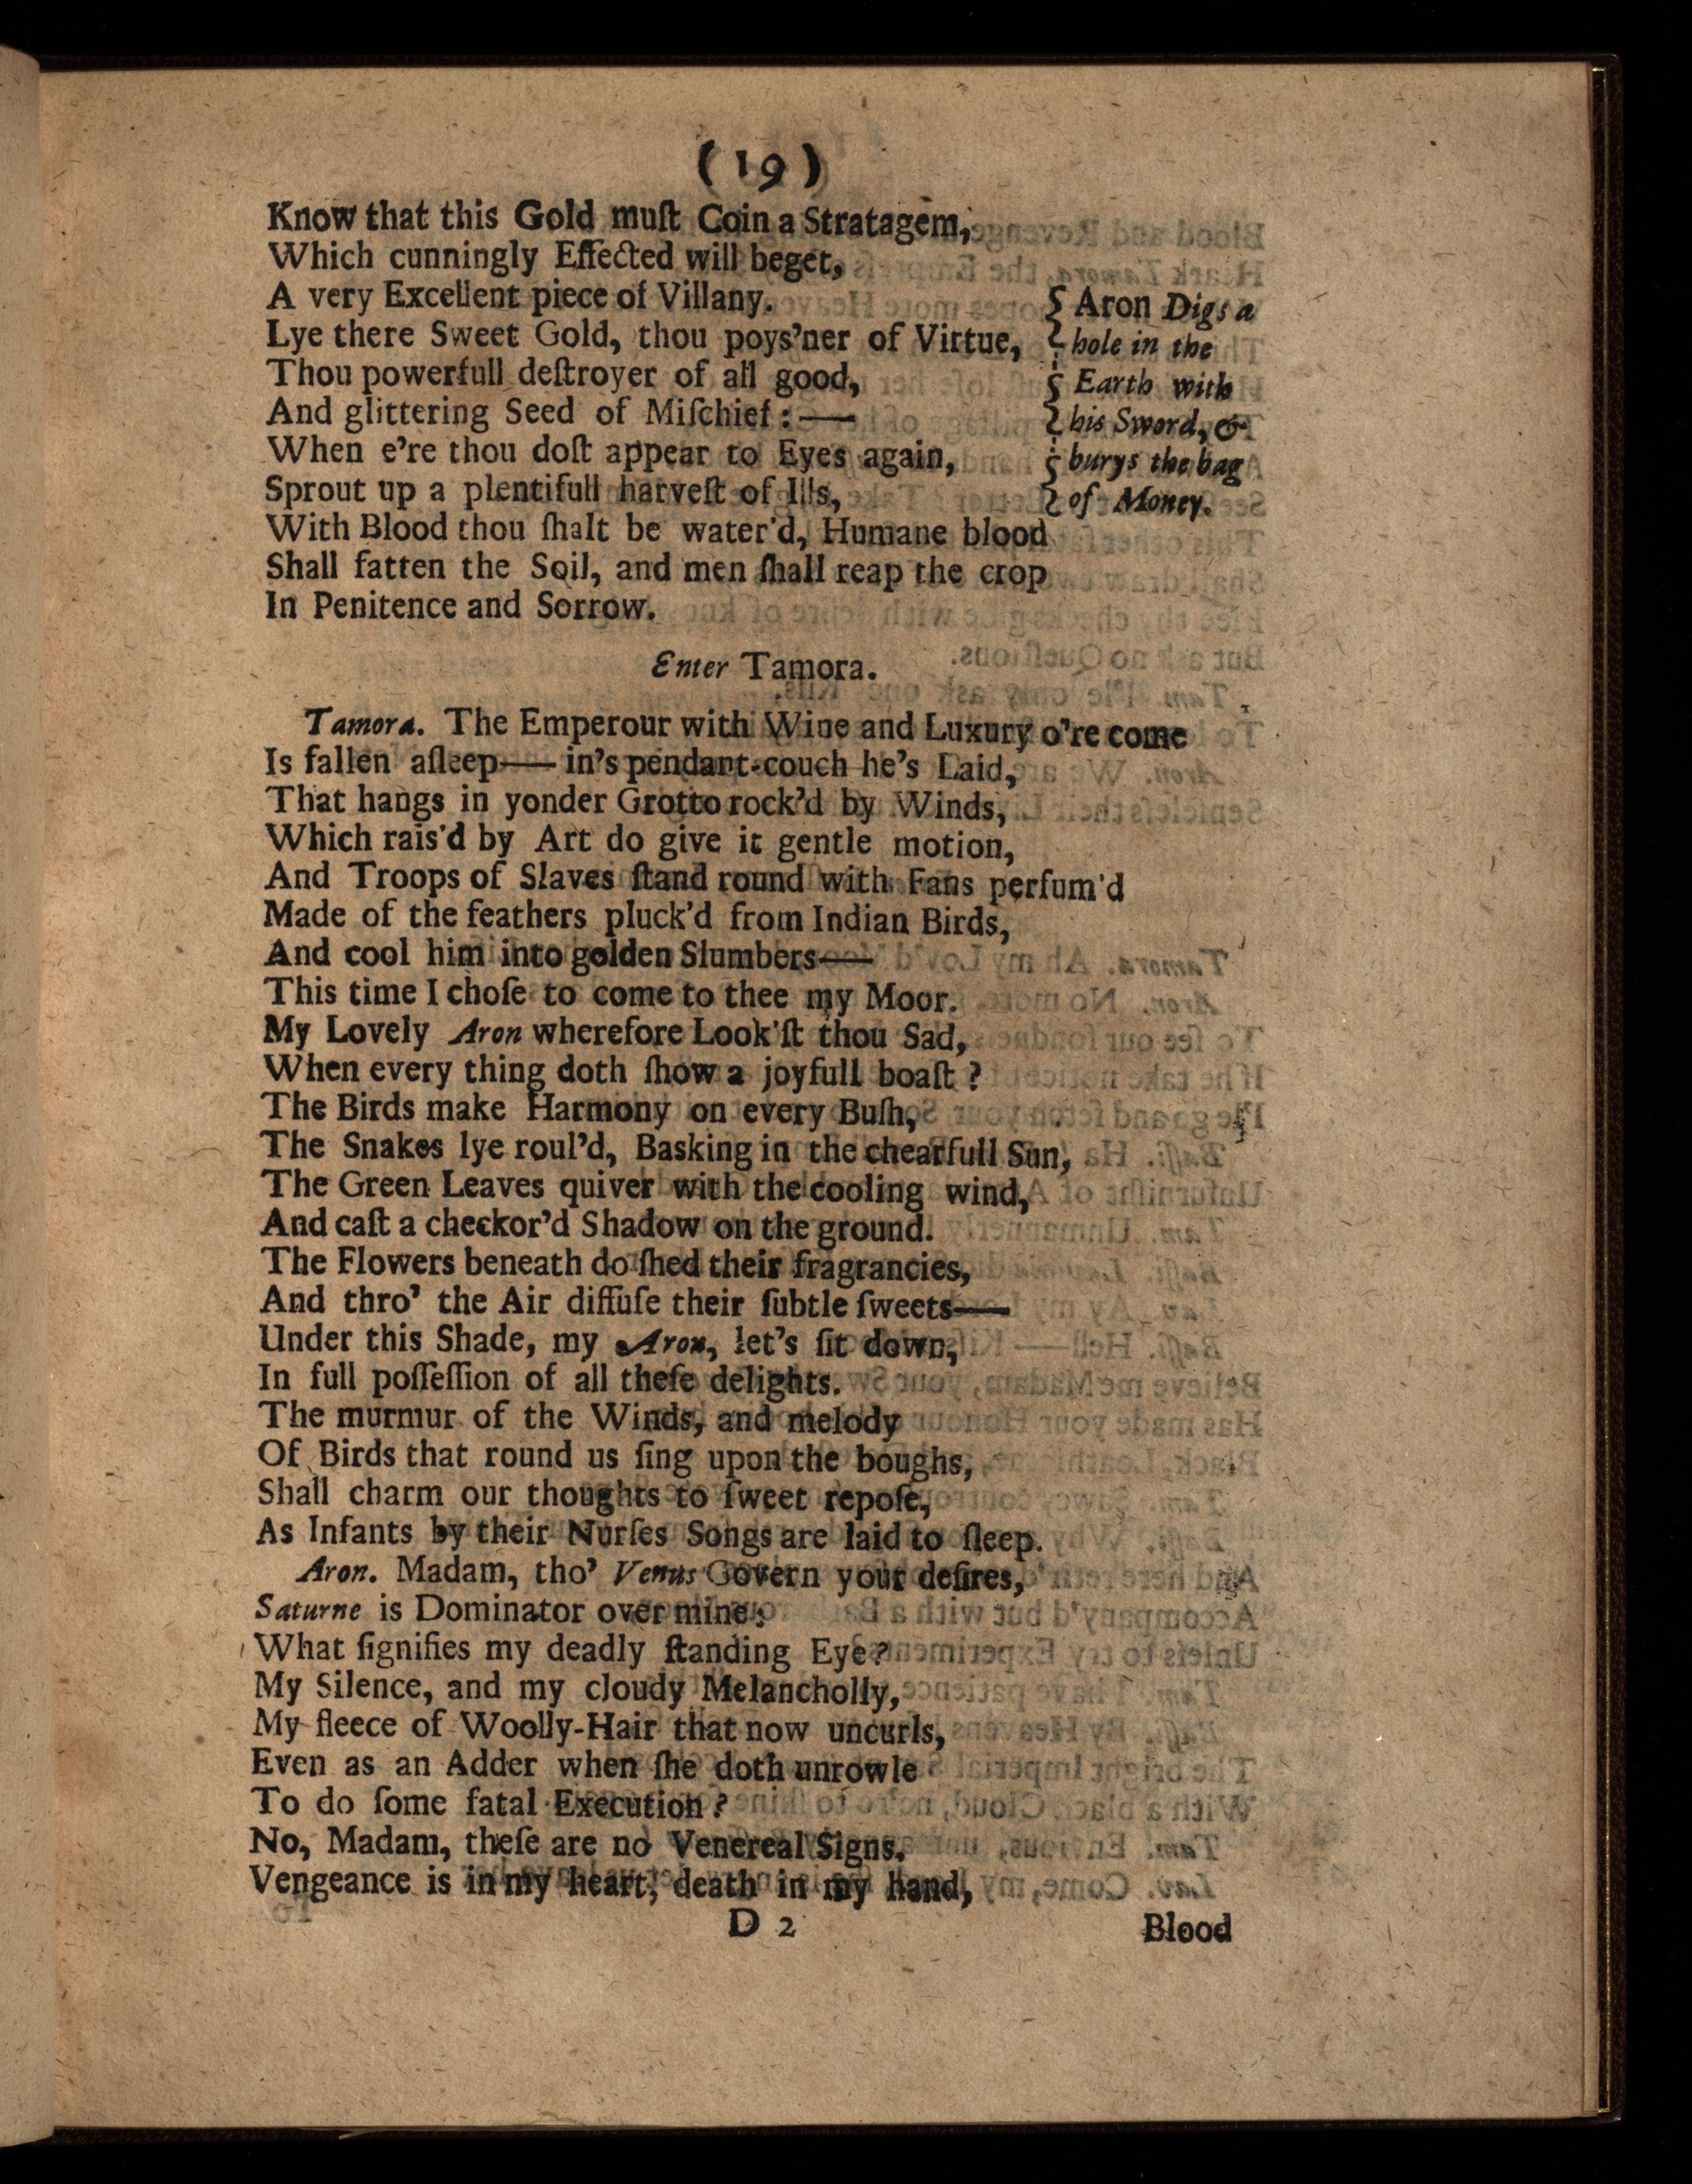 (19)
Know that this Gold muſt Coin a Stratagem,
Which cunningly Effected will beget,
A very Excellent piece of Villany.
Lye there Sweet Gold, thou poys'ner of Virtue,
Thou powerfull deſtroyer of all good,
And glittering Seed of Miſchief:——
When e're thou doſt appear to Eyes again,
Sprout up a plentifull harveſt of Ills,
Aron Digs a
hole in the
Earth with
his Sword, &
burys the bag
of Money.
With Blood thou ſhalt be water'd, Humane blood
Shall fatten the Soil, and men ſhall reap the crop
In Penitence and Sorrow.
Enter Tamora.
Tamora. The Emperour with Wine and Luxury o're come
Is fallen aſleep—— in's pendant-couch he's Laid,
That hangs in yonder Grotto rock'd by Winds,
Which rais'd by Art do give it gentle motion,
And Troops of Slaves ſtand round with Fans perfum'd
Made of the feathers pluck'd from Indian Birds,
And cool him into golden Slumbers——
This time I choſe to come to thee my Moor.
My Lovely Aron wherefore Look'ſt thou Sad,
When every thing doth ſhow a joyfull boaſt?
The Birds make Harmony on every Buſh,
The Snakes lye roul'd, Basking in the chearfull Sun,
The Green Leaves quiver with the cooling wind,
And caſt a checkor'd Shadow on the ground.
The Flowers beneath do ſhed their fragrancies,
And thro' the Air diffuſe their ſubtle ſweets——
Under this Shade, my Aron, let's ſit down,
In full poſſeſſion of all theſe delights.
The murmur of the Winds, and melody
Of Birds that round us ſing upon the boughs,
Shall charm our thoughts to ſweet repoſe,
As Infants by their Nurſes Songs are laid to ſleep.
Aron. Madam, tho' Venus Govern your deſires,
Saturne is Dominator over mine:
What ſignifies my deadly ſtanding Eye?
My Silence, and my cloudy Melancholly,
My fleece of Woolly-Hair that now uncurls,
Even as an Adder when ſhe doth unrowle
To do ſome fatal Execution?
No, Madam, theſe are no Venereal Signs.
Vengeance is in my heart, death in my hand,
D 2
Blood